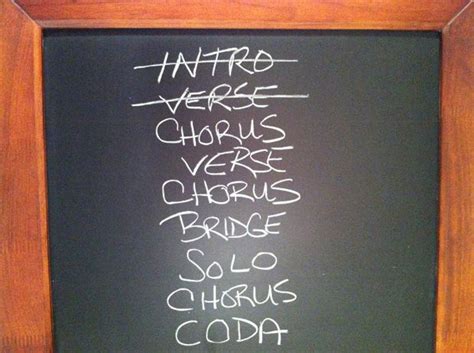 INTRO
VERSE
CHORUS
VERSE
CHORUS
BRIDGE
SOLO
CHORUS
CODA